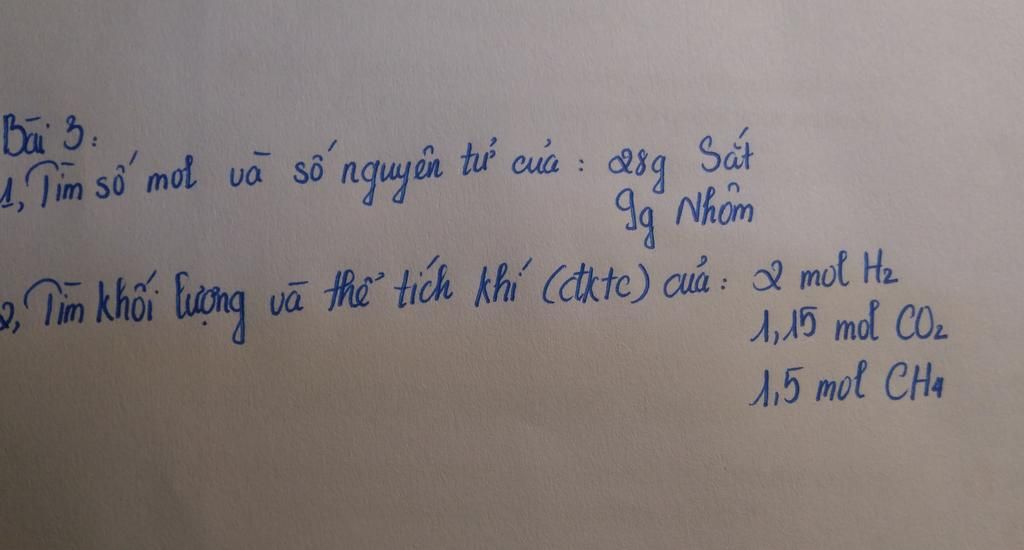 Bài 3:
1, Tìm số mol và số nguyên tử của : 28g Sắt
9g Nhôm
2, Tìm khối lượng và thể tích khí (đktc) của : 2 mol H₂
1,15 mol CO₂
1,5 mol CH₄